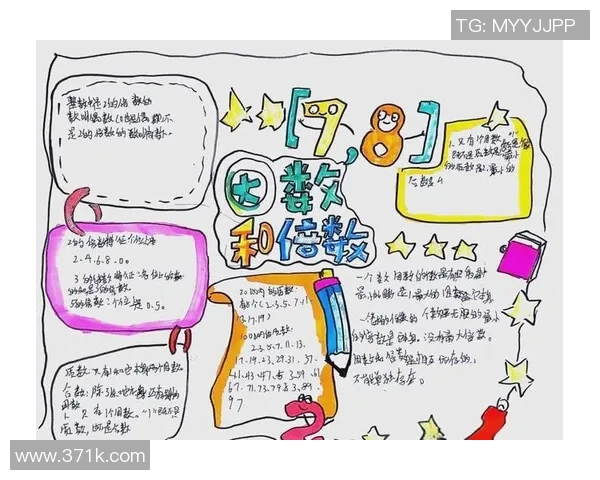 TG: MYYJJPP
[7,8]
因数
和倍数
整数中是2的倍数的
数叫偶数(0也是偶数)不
是2的倍数的数叫奇数.
1.又有1个因数,"1"
2的倍数特征个位是
2.4.6.8.0。
5的倍数:个位是0.5。
20以内的质数:
8个(2.3.5.7.11
13.17.19)
100以内质数:
2.3.5.7.11.13.
17.19.23.29.31.37.
41.43.47.53.59.61
67.71.73.79.83.89.
97
一个数因数的个数是有限的,最
小的因数是1,最大的因数是它本身
一个数的倍数的个数是无限的,最小
的倍数是它本身,没有最大倍数。
因数和倍数是相互依存的,
不能单独存在。
质数:只有1和它本身两个因数。
合数:除了1和它本身还有别的
因数
1只有1个因数。"1"既不是
质数,也不是合数
www.371k.com